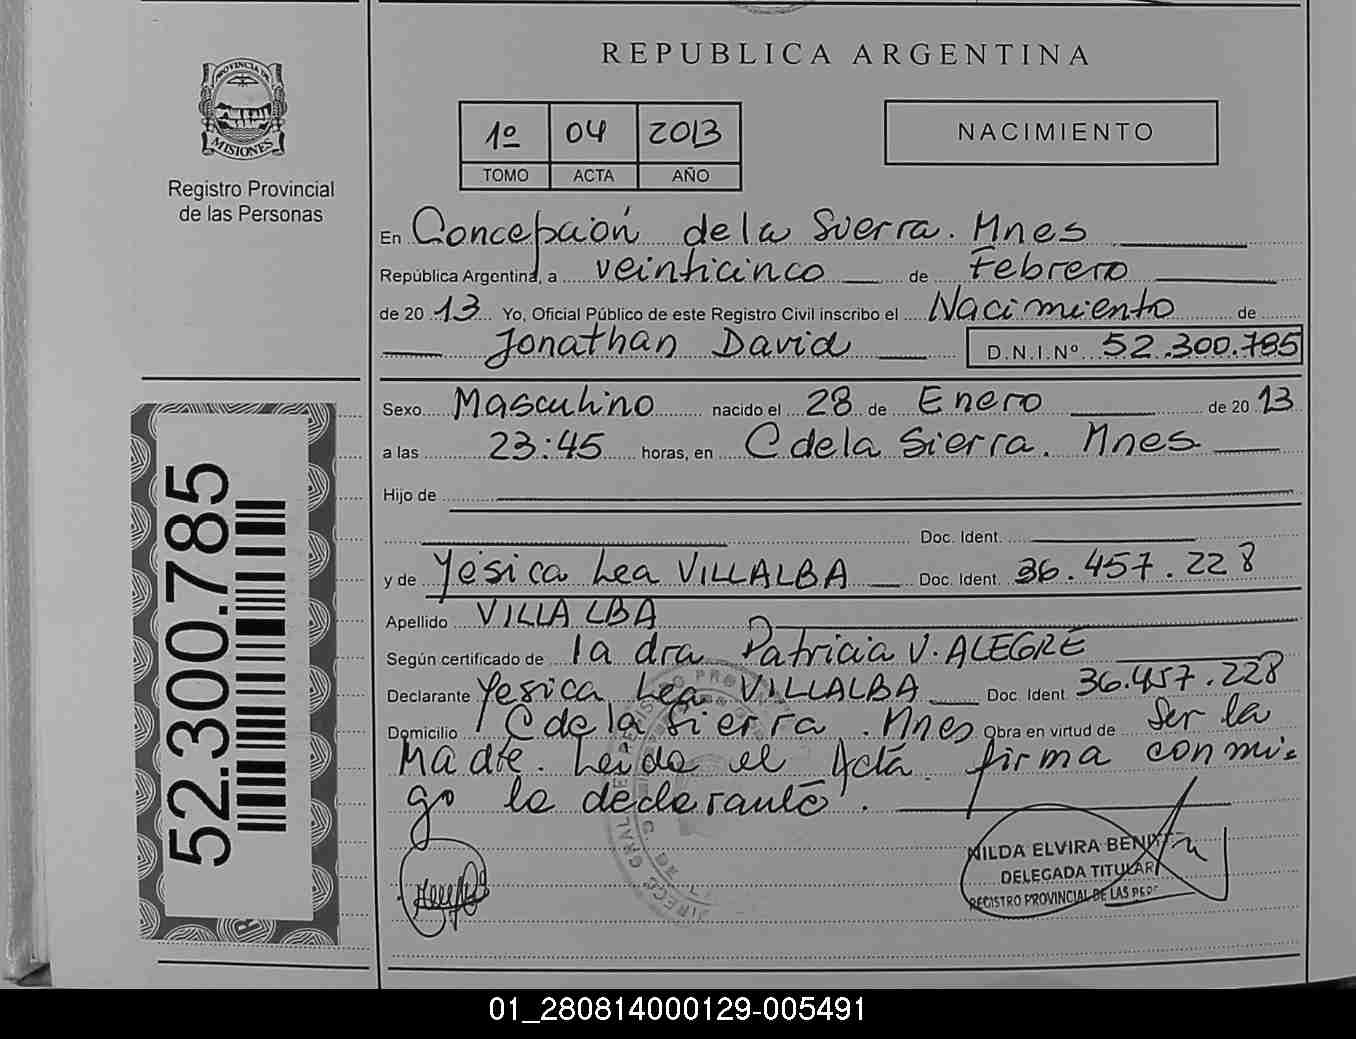 REPUBLICA ARGENTINA
PROVINCIA DE
MISIONES
Registro Provincial
de las Personas
1º 04 2013
TOMO ACTA AÑO
NACIMIENTO
En Concepción de la Sierra. Mnes
República Argentina, a veinticinco de Febrero
de 2013 Yo, Oficial Público de este Registro Civil inscribo el Nacimiento de
Jonathan David D.N.I.Nº 52.300.785
Sexo Masculino nacido el 28 de Enero de 2013
a las 23:45 horas, en C de la Sierra. Mnes
Hijo de
Doc. Ident.
y de Yesica Lea VILLALBA Doc. Ident. 36.457.228
Apellido VILLALBA
Según certificado de la dra Patricia V. ALEGRE
Declarante Yesica Lea VILLALBA Doc. Ident 36.457.228
Domicilio C de la Sierra. Mnes Obra en virtud de Ser la
Madre. Leida el Acta. firma conmi=
go la declarante.
52.300.785
NILDA ELVIRA
DELEGADA TITULAR
REGISTRO PROVINCIAL DE LAS
01_280814000129-005491